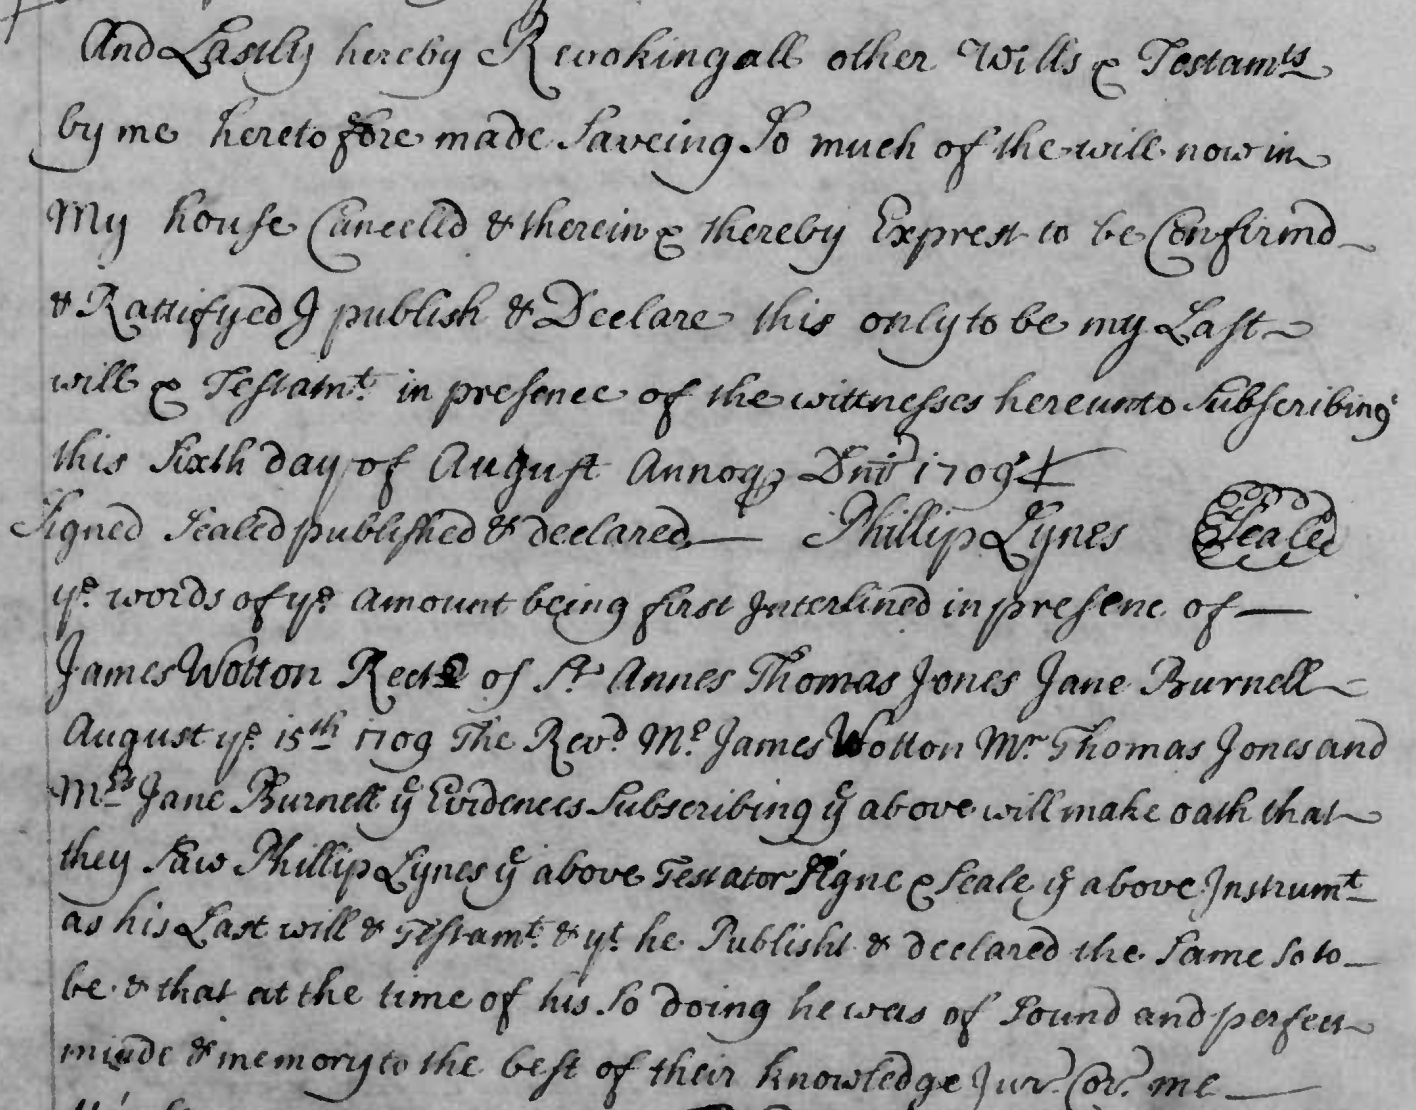 And Lastly hereby Revoking all other Wills & Testamts
by me heretofore made Saveing So much of the will now in
My house Cancelld & therein & thereby Exprest to be Confirmd
& Rattifyed I publish & Declare this only to be my Last
will & Testamt. in presence of the wittnesses hereunto Subscribing
this Sixth day of August Annoq Dni 1709
Signed Sealed published & declared Phillip Lynes Sealed
ye. words of ye. amount being first Interlined in presenc of
James Wotton Rectr of St Annes Thomas Jones Jane Burnell
August ye. 15th 1709 The Revd. Mr. James Wotton Mr Thomas Jones and
Mrs Jane Burnell ye Evidences Subscribing ye above will make oath that
they Saw Phillip Lynes ye above Testator Signe & Seale ye above Instrumt
as his Last will & Testamt. & yt. he Publisht & declared the Same So to
be & that at the time of his So doing he was of Sound and perfect
minde & memory to the best of their knowledge Jur. Cor. me